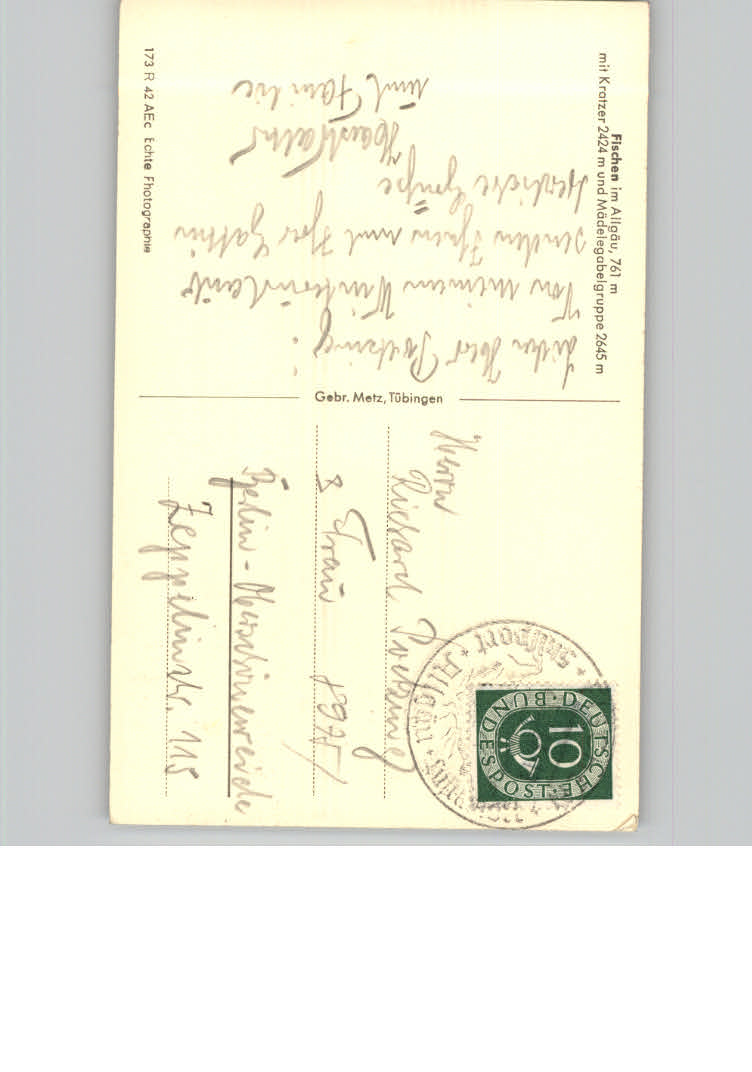 Fischen im Allgäu, 761 m
mit Kratzer 2424 m und Mädelegabelgruppe 2645 m
Von meinem Winterurlaub
senden Ihnen und Ihrer Gattin
herzliche Grüße
und Familie
173 R 42 AEc Echte Photographie
Gebr. Metz, Tübingen
DEUTSCHE BUNDESPOST
10
Allgäu
Herrn
Richard
& Frau
Berlin-Oberschöneweide
Zeppelinstr. 115